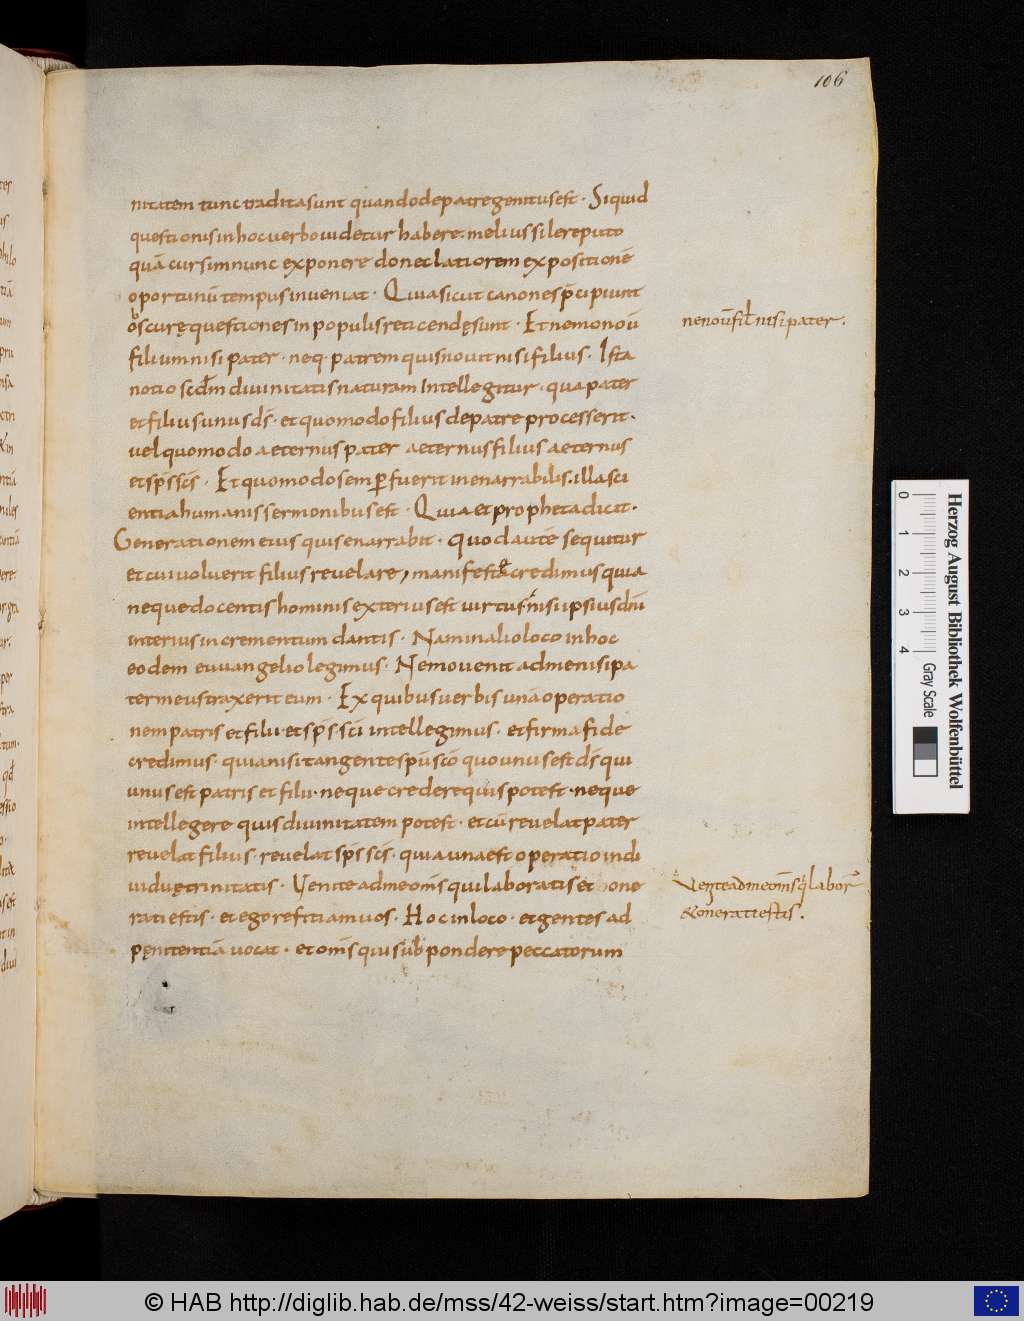 106
nitatem tunc tradita sunt quando de patre genitus est · Siquid
questionis in hoc uerbo uidetur habere · melius silere puto
quā cursim nunc exponere donec latiorem expositionē
oportunū tempus inueniat · Quia sicut canones p̄cipiunt
obscurę questiones in populis reticendę sunt · Et nemo noū
nenoū fil̄ nisi pater .
filium nisi pater · neq· patrem quis nouit nisi filius · Ista
notio scdm̄ diuinitatis naturam Intellegitur · qua pater
et filius unus ds̄ · et quomodo filius de patre processerit ·
uel quomodo aeternus pater aeternus filius aeternus
et sps̄ scs̄ · Et quomodo semꝑ fuerit inenarrabilis · illa sci
entia humanis sermonibus est · Quia et propheta dicit ·
Generationem eius quis enarrabit · quod autē sequitur
et cui uoluerit filius reuelare, manifeste credimus quia
neque docentis hominis exterius est uirtus nisi ipsius dn̄i
interius incrementum dantis · Nam in alio loco in hoc
eodem euuangelio legimus · Nemo uenit ad me nisi pa
ter meus traxerit eum · Ex quibus uerbis unā operatio
nem patris et filii · et sps̄ sc̄i intellegimus · et firma fide
credimus · quia nisi tangente spū scō quo unus est ds̄ qui
unus est patris et filii · neque credere quis potest · neque
intellegere quis diuinitatem potest · et cū reuelat pater
reuelat filius · reuelat sps̄ scs̄ · quia una est operatio indi
uiduę trinitatis · Uenite ad me om̄s qui laboratis et one
Uenite ad me om̄s q labor
rati estis · et ego reficiam uos · Hoc in loco · et gentes ad
& onerati estis .
pęnitentiā uocat · et om̄s qui sub pondere peccatorum
Herzog August Bibliothek Wolfenbüttel
0 1 2 3 4 Gray Scale
© HAB http://diglib.hab.de/mss/42-weiss/start.htm?image=00219